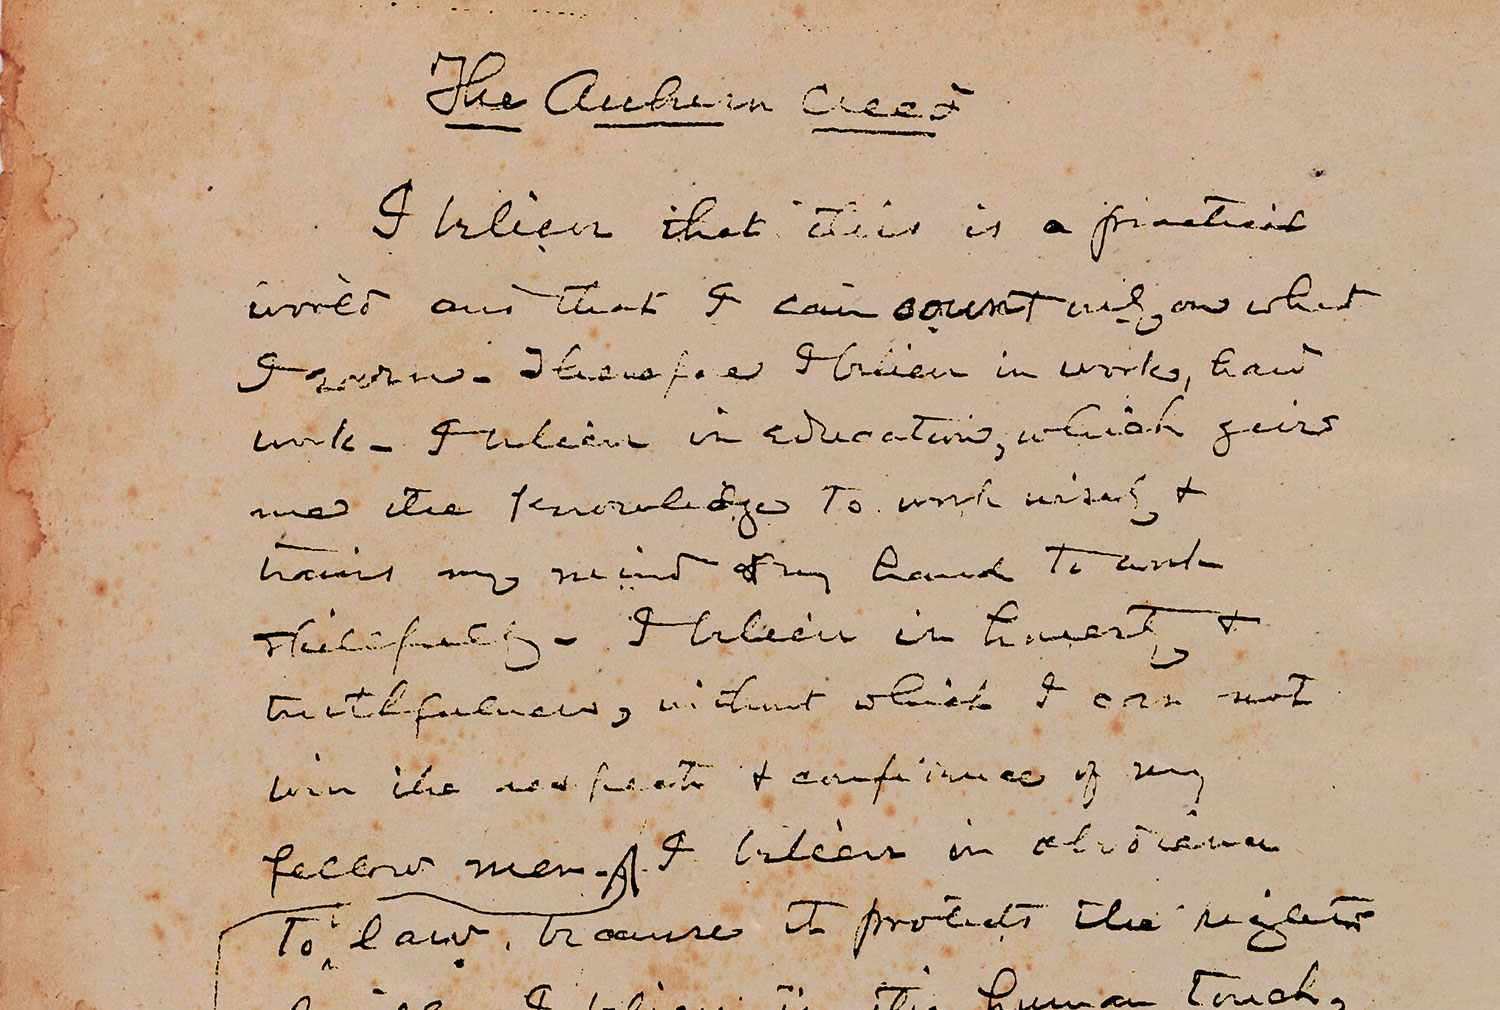 The Auburn Creed
I believe that this is a practical
world and that I can count upon what
I earn. Therefore I believe in work, hard
work. I believe in education, which gives
me the knowledge to work wisely &
trains my mind & my hand to work
skillfully. I believe in honesty &
truthfulness, without which I can not
win the respect & confidence of my
fellow men. I believe in obedience
to law, because it protects the rights
of all. I believe in the human touch,